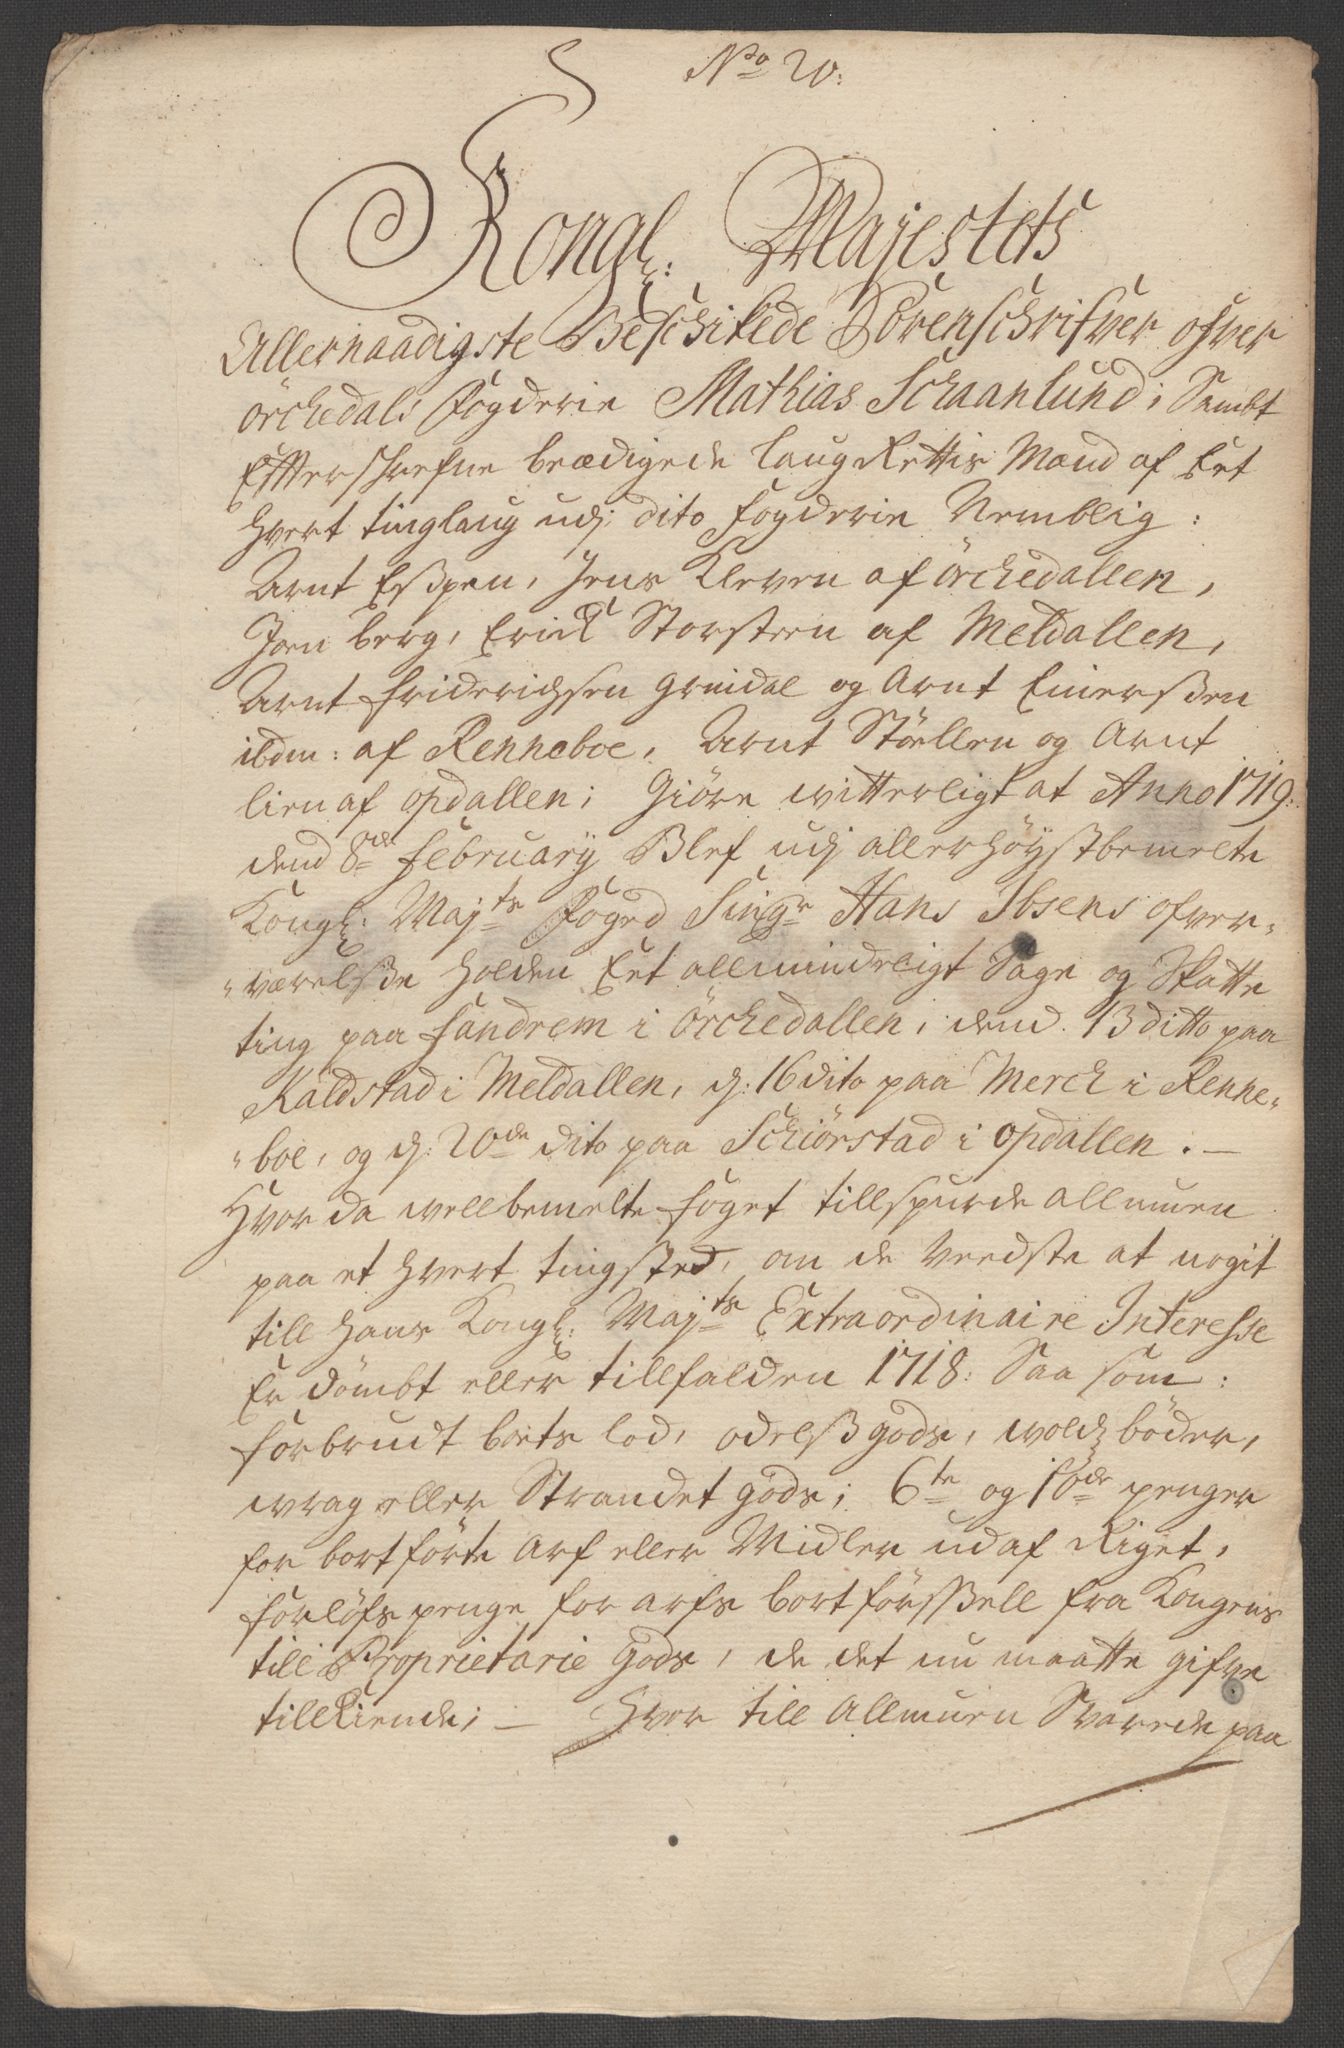 No 20:
Kongl: Majestets
Allernaadigste Beschikede Sorenschrifver ofver
örchedals fogderie Mathias Schaanlund; Sambt
Effterschrefne beædigede laugRettis Mænd af Eet
hvert tinglaug udj dito fogderie Nemblig:
Arnt Eßpen, Jens Kleven af örchedallen,
Joen berg, Erick Storsteen af Meldallen,
Arnt friderichsen grindal og Arnt Einerßen
ibdm: af Renneboe, Arnt Stöellen og Arnt
lien af opdallen; Giöre witterligt at Anno 1719:
dend 8de february Blef udj allerhöystbemelte
Kongl: Majts foged Singr Hans Ibsens ofver-
-værelße holden Eet allmindeligt Sage og Skatte
ting paa fandrem i örchedallen, dend 13 ditto paa
Kaldstad i Meldallen, d: 16 dito paa Merch i Renne-
-boe, og d: 20de dito paa Schiörstad i opdallen. —
Hvor da wellbemelte foget tillspurde allmuen
paa et hvert tingsted, om de veedste at nogit
till hans Kongl: Majts Extraordinaire Interesse
Er dömbt eller tillfalden 1718: Saa som:
forbrudt boets lod, odelß gods, wold böder,
wrag eller Strandet gods; 6te og 10de penger
for bortförte Arf eller Midler ud af Riget,
forlöfs penge for arfs bortförßell fra Kongens
till Proprietarie gods, de det nu maatte gifve
tillkiende; — Hvor till Allmuen Svarede paa